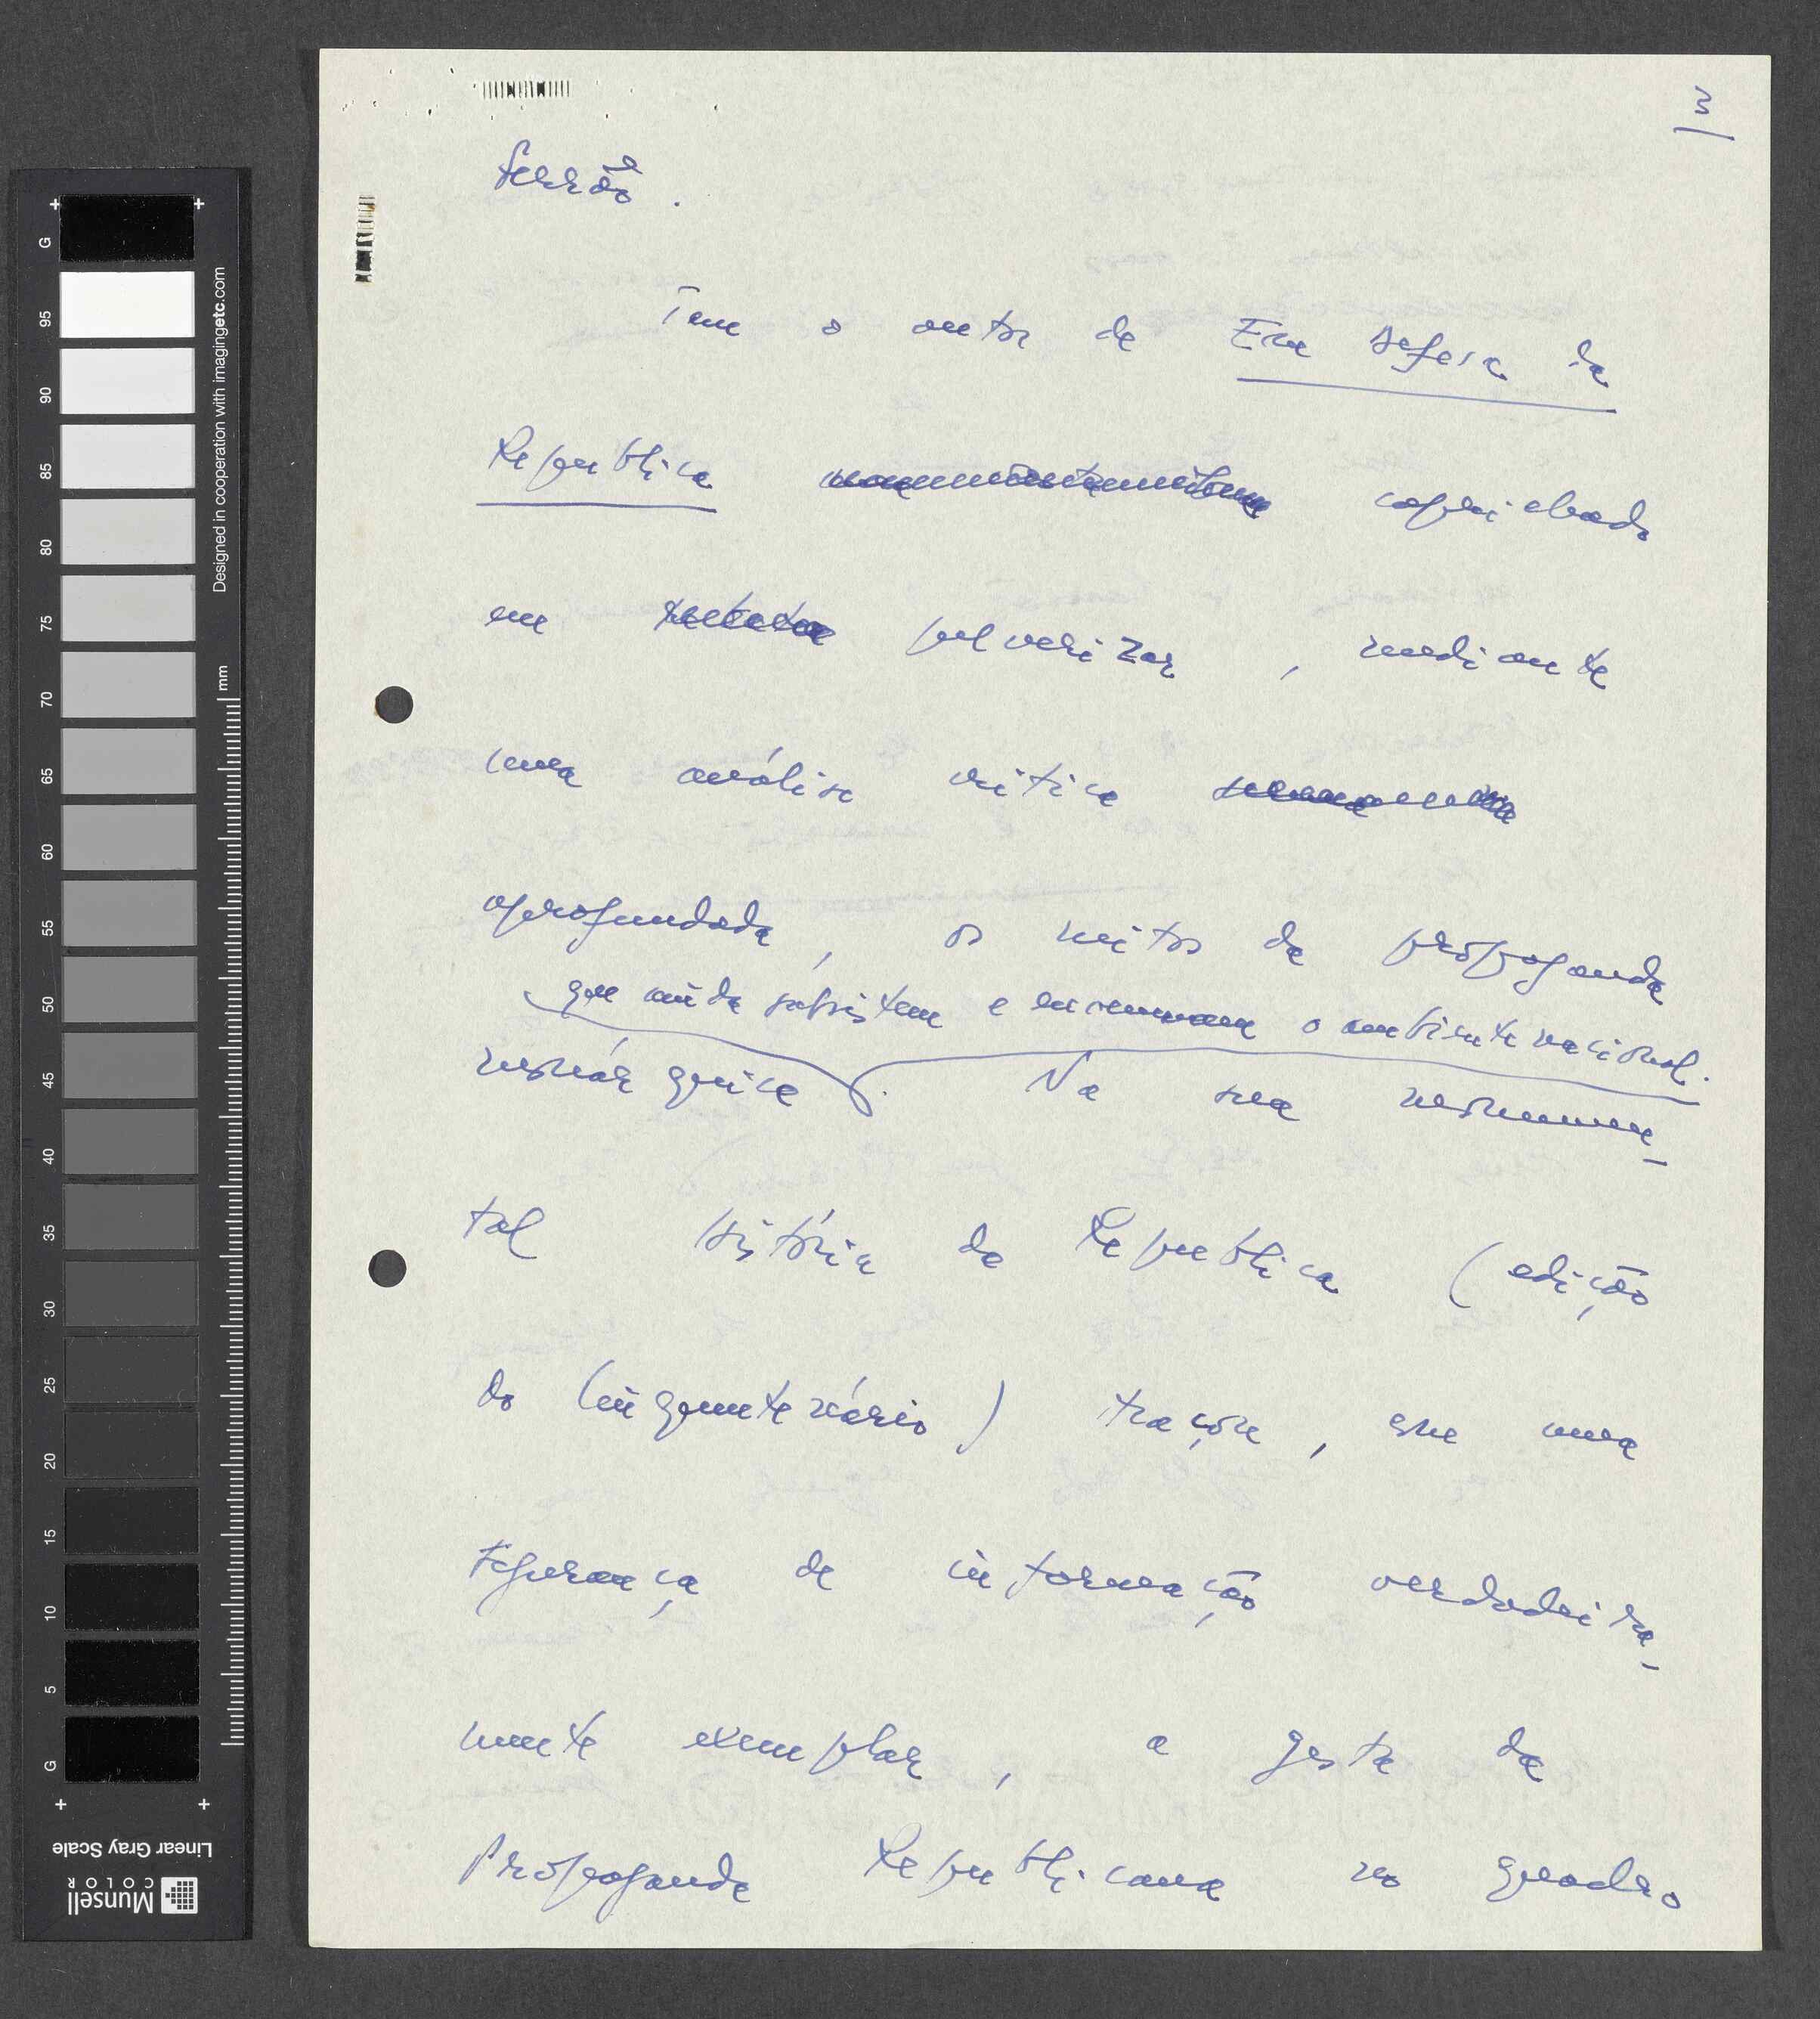 3
Ferrão.
Tem o autor de Em Defesa da
República caprichado
em pulverizar, mediante
uma análise crítica
aprofundada, os mitos da propaganda
que ainda subsistem e o ambiente nacional.
monárquica. Na sua monumen-
tal História da República (edição
do Cinquentenário) traçou, com uma
segurança de informação verdadeira-
mente exemplar, a gesta da
Propaganda Republicana no quadro
G 95 90 85 80 75 70 65 60 55 50 45 40 35 30 25 20 15 10 5 G
mm
Designed in cooperation with imagingetc.com
Linear Gray Scale
Munsell
COLOR